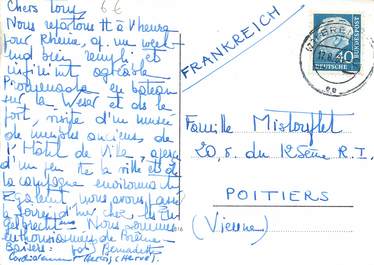 Chers tous, 6€
Nous repartons tt à l'heure
pour Rheine, ap. un week-
end bien rempli et
infiniment agréable
Promenade en bateau
sur la Weser et ds le
port, visite d'un musée
de meubles anciens, de
l'Hôtel de Ville, aperçu
d'un peu tte la ville et de
la campagne environnante
Egalement nous avons passé
la soirée d'hier chez
Nous sommes
enthousiasmés de Brême
Baisers: Bernadette
Cordialement (HERVÉ).
FRANKREICH
BREMEN
40
DEUTSCHE BUNDESPOST
Famille
20, r. du 125ème R.I.
POITIERS
(Vienne)